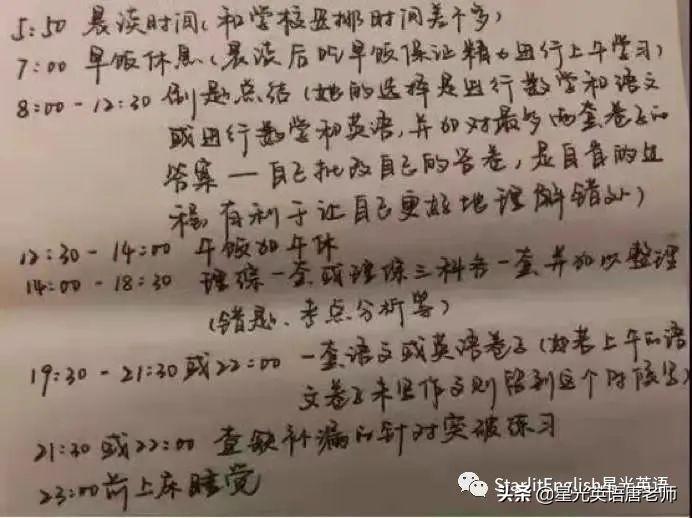 5:50 晨读时间(和学校安排时间差不多)
7:00 早饭休息(晨读后吃早饭保证精力进行上午学习)
8:00-12:30 刷题总结(她的选择是进行数学和语文
或进行数学和英语,并加对最多两套卷子的
答案—自己批改自己的答卷,是自省的过
程,有利于让自己更好地理解错处)
12:30-14:00 午饭加午休
14:00-18:30 理综一套或理综三科各一套并加以整理
(错题、考点分析等)
19:30-21:30或22:00 一套语文或英语卷子(如若上午的语
文卷子未写作文则留到这个时候写)
21:30或22:00 查缺补漏的针对突破练习
23:00前上床睡觉
StarlitEnglish星光英语
头条@星光英语唐老师